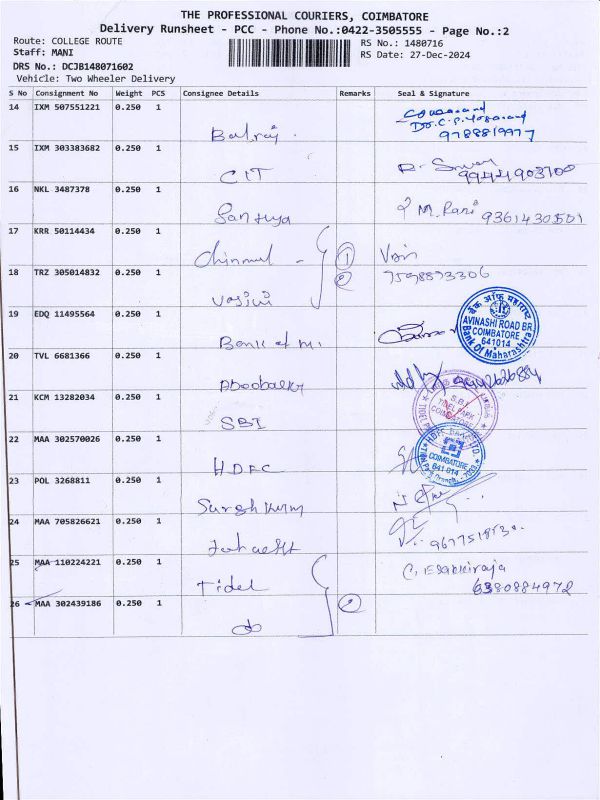 THE PROFESSIONAL COURIERS, COIMBATORE
Delivery Runsheet - PCC - Phone No.:0422-3505555 - Page No.:2
Route: COLLEGE ROUTE
RS No.: 1480716
Staff: MANI
RS Date: 27-Dec-2024
DRS No.: DCJB148071602
Vehicle: Two Wheeler Delivery
S No Consignment No Weight PCS Consignee Details Remarks Seal & Signature
14 IXM 507551221 0.250 1
Balraj
9788819977
15 IXM 303383682 0.250 1
CIT
9944903700
16 NKL 3487378 0.250 1
Santhya M. Rani 9361430501
17 KRR 50114434 0.250 1
Chinmul 1
18 TRZ 305014832 0.250 1
2 7598893306
19 EDQ 11495564 0.250 1
Bank of M.
बैंक ऑफ महाराष्ट्र
AVINASHI ROAD BR.
COIMBATORE
641014
Bank Of Maharashtra
20 TVL 6681366 0.250 1
Aboobakkr
21 KCM 13282034 0.250 1
SBI
S.B.I.
TIDEL PARK
COIMBATORE
22 MAA 302570026 0.250 1
HDFC
HDFC BANK LTD.
COIMBATORE
641 014
23 POL 3268811 0.250 1
Suresh Kumar
24 MAA 705826621 0.250 1
25 MAA 110224221 0.250 1
Tidel
C. Esakkiraja
6380884972
26 MAA 302439186 0.250 1
do 2